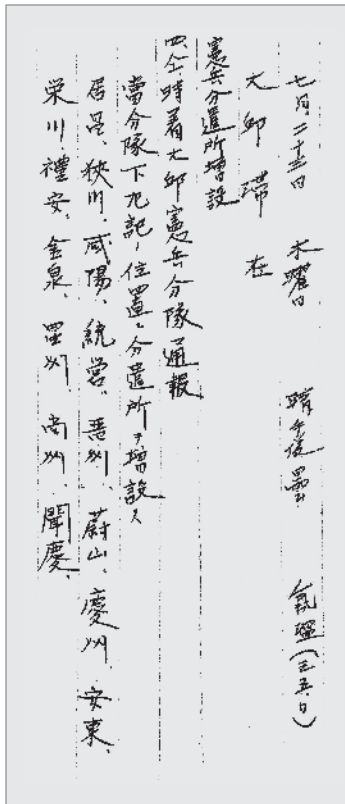 七月二十三日 木曜日 晴午後曇 氣溫
大邱滞在
憲兵分遣所増設
時着大邱憲兵分隊通報
當分隊下記ノ位置ニ分遣所ヲ増設ス
居昌、狭川、咸陽、統営、晋州、蔚山、慶州、安東、
栄川、禮安、金泉、星州、尚州、聞慶、